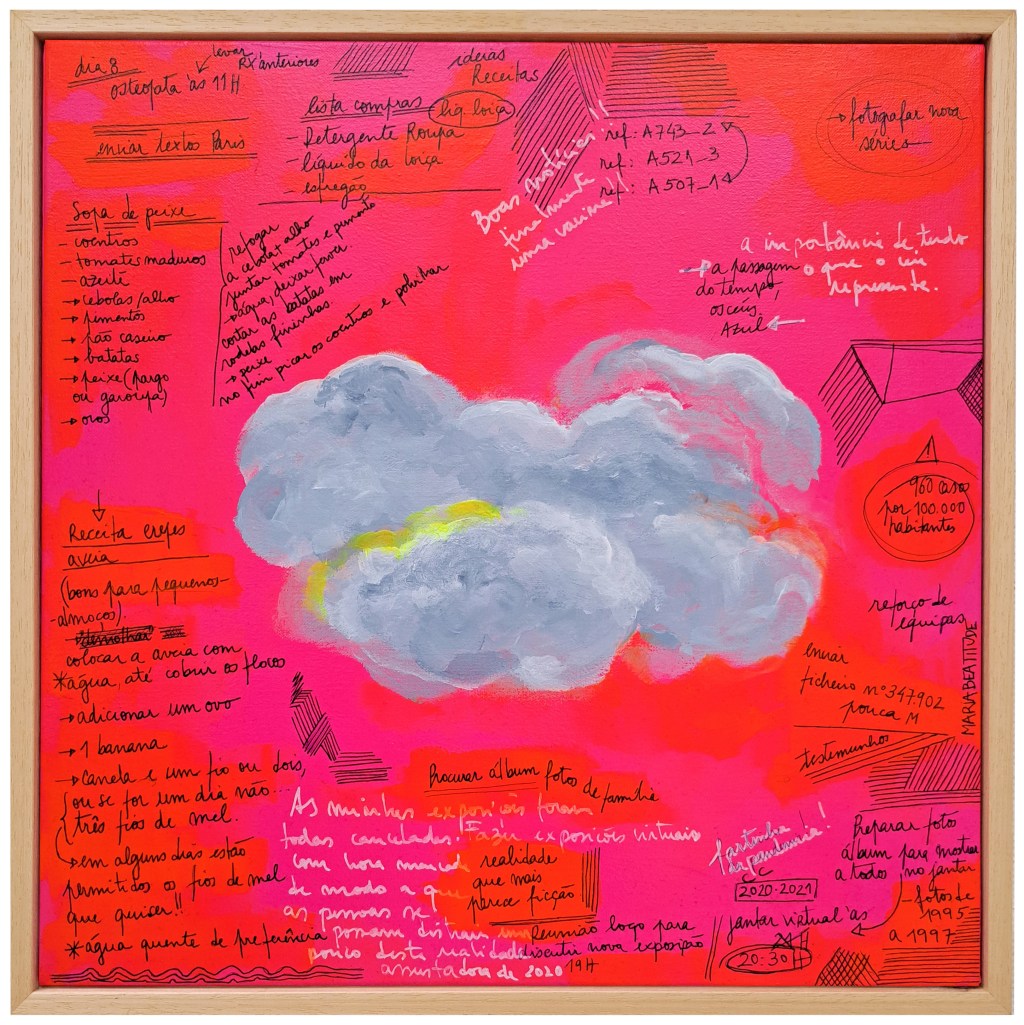 dia 8
levar
RX anteriores
osteopata às 11H
enviar textos Paris
ideias
Receitas
lista compras
liq. loiça
- Detergente Roupa
- líquido da loiça
- esfregão
Boas notícias!!
finalmente
uma vacina!!
ref: A743_2
ref: A521_3
ref: A507_1
→ fotografar nova
séries
a importância de tudo
o que o céu
representa.
→ a passagem
do tempo,
os céus.
AZUL
Sopa de peixe
- coentros
- tomates maduros
- azeite
→ cebolas/alho
→ pimentos
→ pão caseiro
→ batatas
→ peixe (pargo
ou garoupa)
→ ovos
refogar
a cebola + alho
juntar tomates e pimento
→ água, deixar ferver.
cortar as batatas em
rodelas fininhas.
→ peixe
no fim picar os coentros e polvilhar
960 casos
por 100.000
habitantes
reforço de
equipas
MARIABEATITUDE
enviar
ficheiro nº 347.902
pouca M
testemunhos
Receita crepes
aveia
(bons para pequenos-
-almoços).
demolhar
colocar a aveia com
*água, até cobrir os flocos
→ adicionar um ovo
→ 1 banana
→ canela e um fio ou dois,
ou se for um dia não...
três fios de mel.
→ em alguns dias estão
permitidos os fios de mel
que quiser!!
*água quente de preferência
Procurar álbum fotos de família
As minhas exposições foram
todas canceladas! Fazer exposições virtuais
com hora marcada
de modo a que
as pessoas se
possam distrair um
pouco desta realidade
assustadora de 2020
realidade
que mais
parece ficção
Reunião logo para
discutir nova exposição
19H
fartinha
da pandemia!
2020-2021
jantar virtual às
20:30H
Preparar fotos
álbum para mostrar
a todos no jantar
- fotos de
1995
a 1997